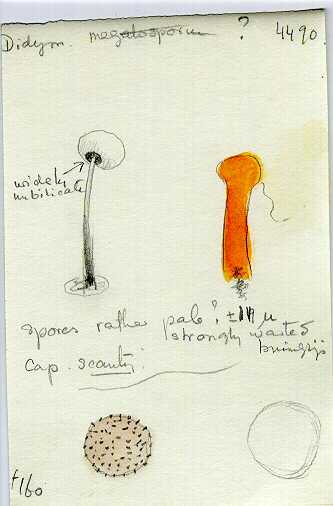 Didym. megalosporum ? 4490
widely
umbilicate
spores rather pale? ±
strongly warted
Cap. scanty.
†160